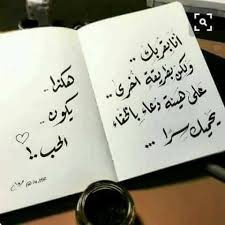 أنا بقربك ..
ولكن بطريقة أخرى ..
على هيئة دعاء بالخفاء
يحميك سراً ...
هكذا ..
يكون ..
الحب ..!